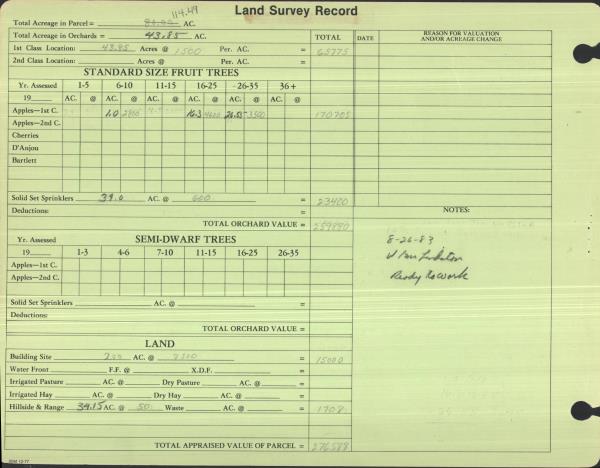 Land Survey Record
114.49
Total Acreage in Parcel = AC.
Total Acreage in Orchards = 43.85 AC. TOTAL DATE REASON FOR VALUATION AND/OR ACREAGE CHANGE
1st Class Location: 43.85 Acres @ 1500 Per. AC. = 65775
2nd Class Location: Acres @ Per. AC. =
STANDARD SIZE FRUIT TREES
Yr. Assessed 1-5 6-10 11-15 16-25 26-35 36+
19 AC. @ AC. @ AC. @ AC. @ AC. @ AC. @
Apples—1st C. 1.0 2800 16.3 4600 26.55 3500 170705
Apples—2nd C.
Cherries
D'Anjou
Bartlett
Solid Set Sprinklers 39.0 AC. @ 600 = 23400
Deductions: = NOTES:
TOTAL ORCHARD VALUE = 259880
SEMI-DWARF TREES
Yr. Assessed
19 1-3 4-6 7-10 11-15 16-25 26-35
Apples—1st C.
Apples—2nd C.
8-26-83
Ready to work
Solid Set Sprinklers AC. @ =
Deductions:
TOTAL ORCHARD VALUE =
LAND
Building Site 2.00 AC. @ 7500 = 15000
Water Front F.F. @ X.D.F. =
Irrigated Pasture AC. @ Dry Pasture AC. @ =
Irrigated Hay AC. @ Dry Hay AC. @ =
Hillside & Range 34.15 AC. @ 50 Waste AC. @ = 1708
TOTAL APPRAISED VALUE OF PARCEL = 276588